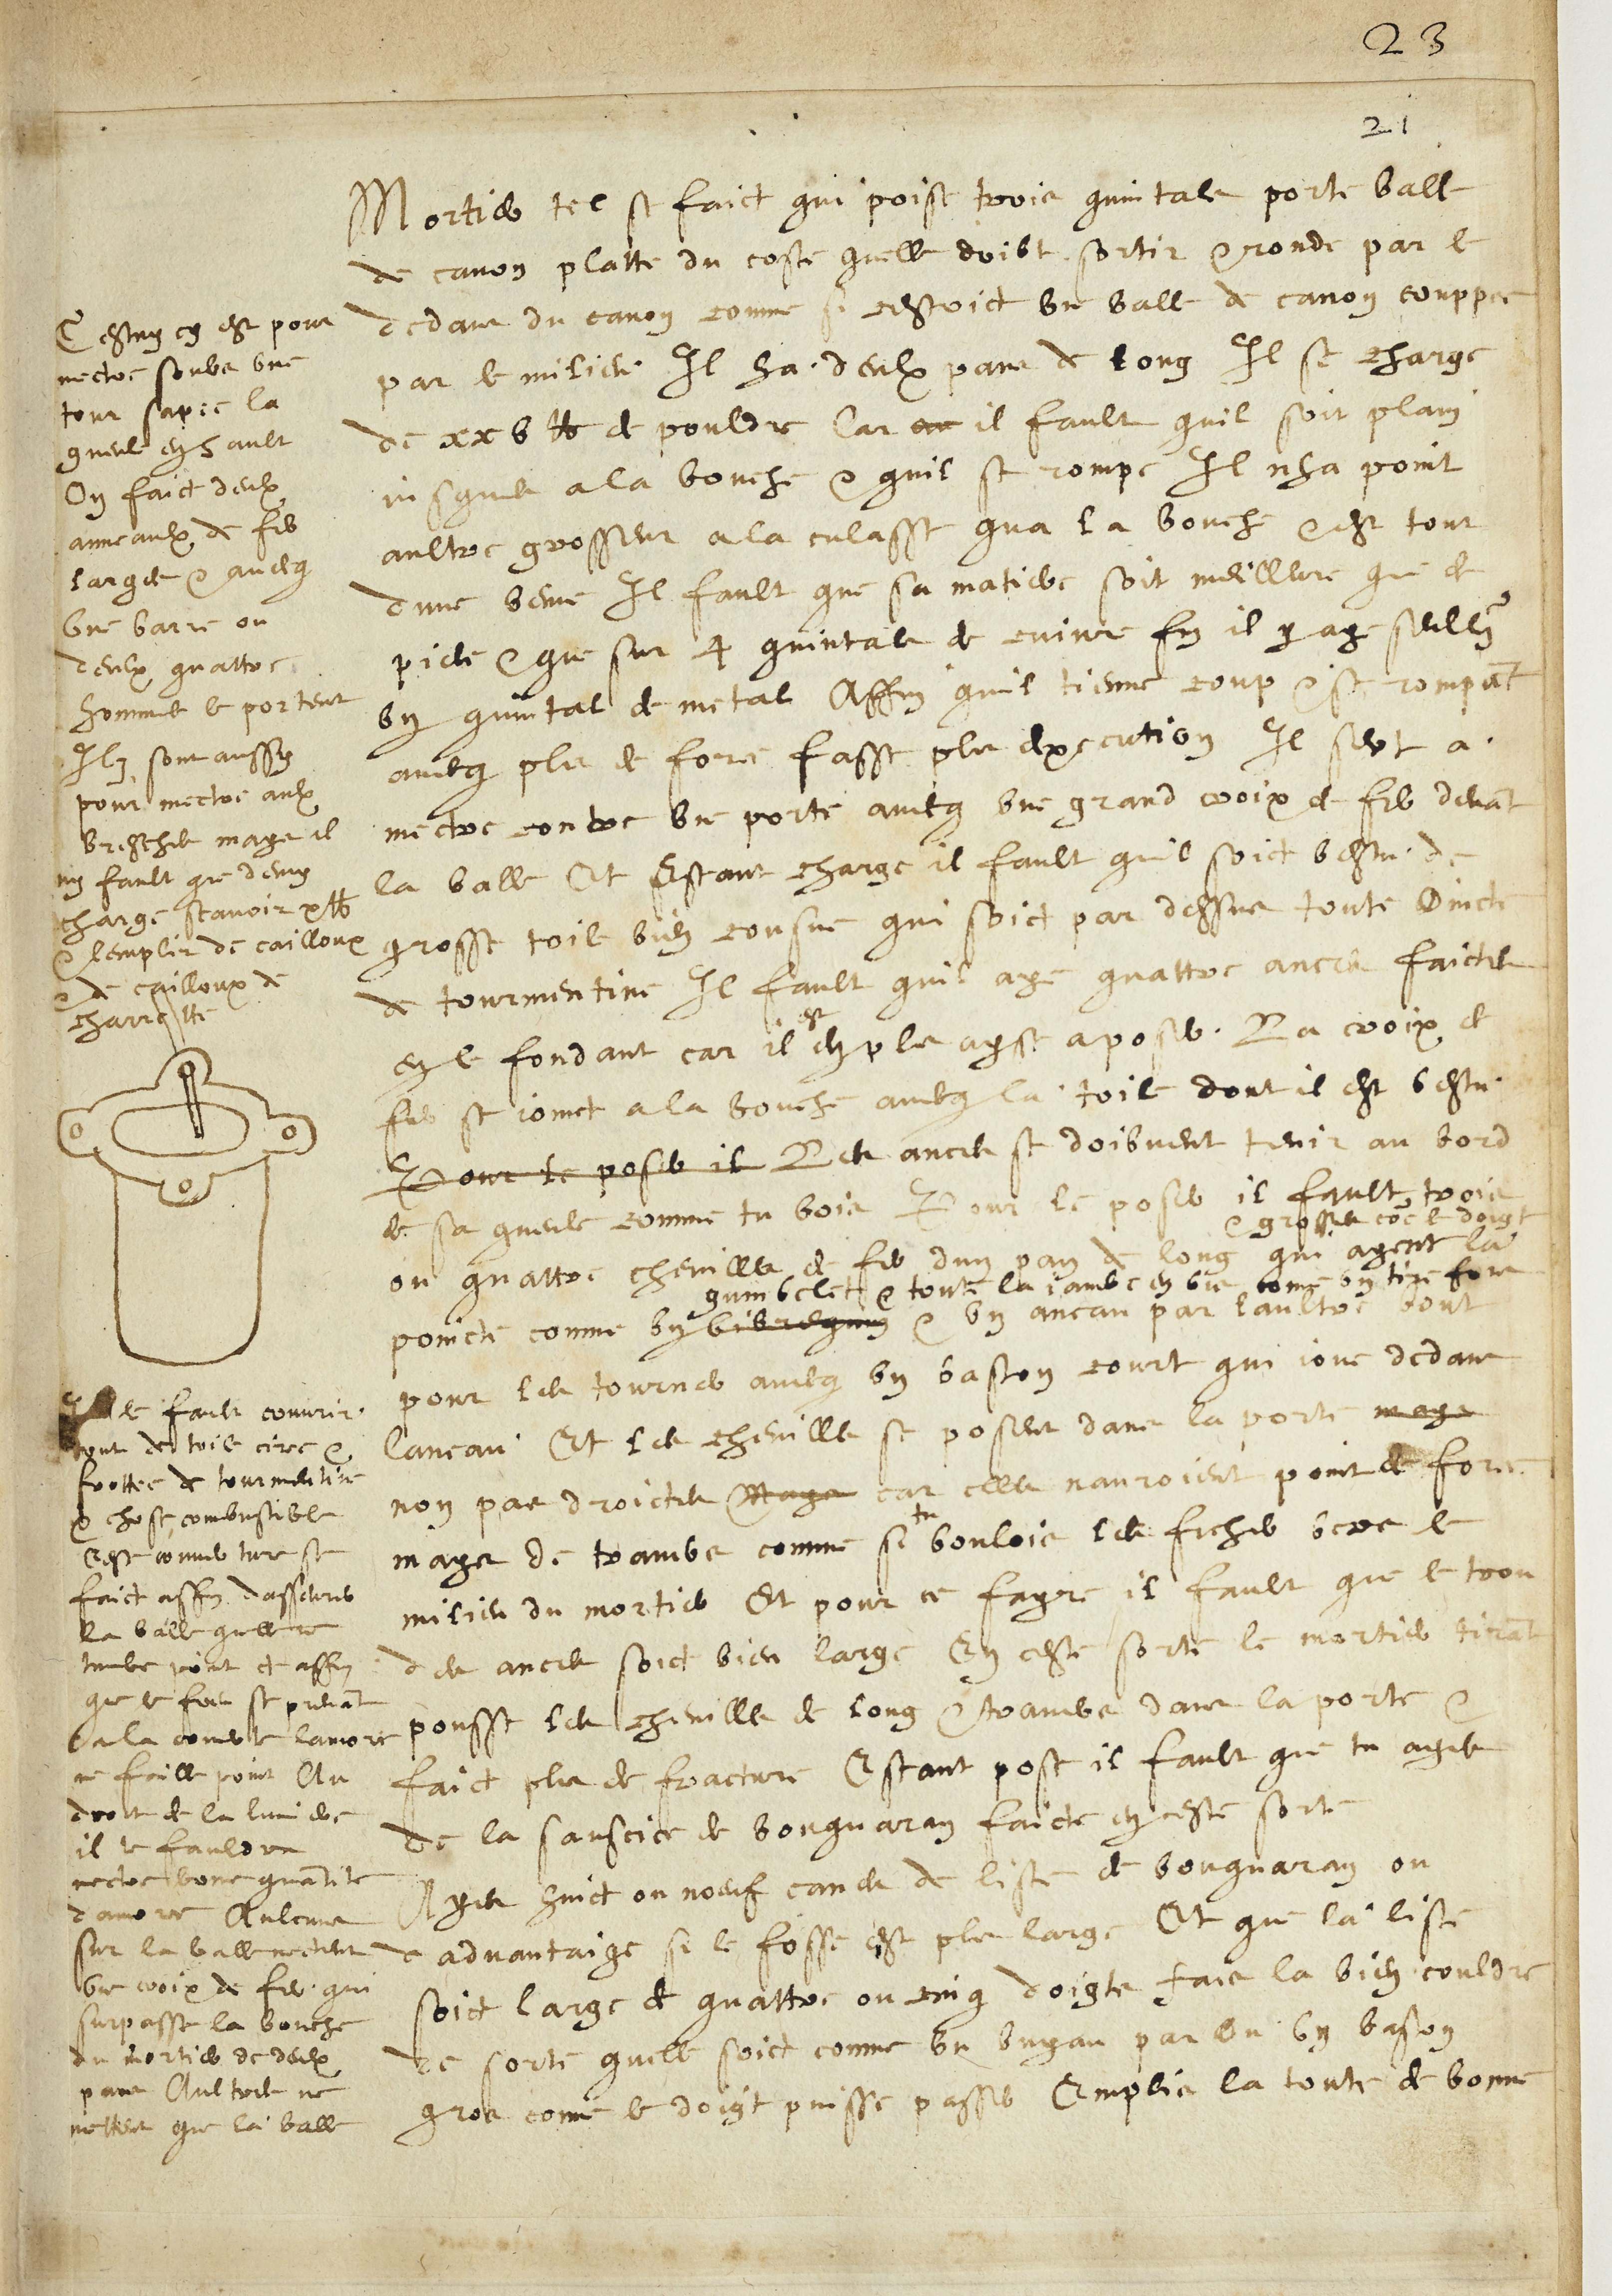 23
21
Mortier tel se faict qui poise trois quintals porte balle
de canon platte du coste quelle doibt sortir & ronde par le
dedans du canon comme si cestoict une balle de canon couppee
par le milieu Il ha deulx pans de long Il se charge
de xxv lb de pouldre Car il fault quil soit plain
jusques a la bouche & quil se rompe Il nha point
aultre grosseur a la culasse qua la bouche & est tout
dune venue Il fault que sa matiere soit meilleure que de
pieces & que sur 4 quintals de cuivre fin il y aye seullem
un quintal de metal Affin quil tienne coup & se rompant
aveq plus de force fasse plus dexecution Il sert a
mectre contre une porte aveq une grand croix de fer devant
la balle Et Estant charge il fault quil soict vestu de
grosse toile bien cousue qui soict par dessus toute Oincte
de tourmentine Il fault quil aye quattre ances faictes
en le fondant car il est en plus ayse a poser. La croix de
fer se joinct a la bouche aveq la toile dont il est vestu.
Pour le poser il Les ances se doibvent tenir au bord
de sa gueule comme tu vois Pour le poser il fault trois
& grosses coe le doigt
ou quattre chevilles de fer dun pan de long qui ayent la
guimbelet & toute la jambe en vis come un tire fons
poincte comme un vibrequin & un aneau par laultre bout
pour les tourner aveq un baston court qui joue dedans
laneau Et les chevilles se posent dans la porte mays
non pas droictes Mays car elles nauroient point de force
mays de travers comme si tu voulois les ficher vers le
milieu du mortier Et pour ce fayre il fault que le trou
des ances soict bien large En ceste sorte le mortier tirant
pousse les chevilles de long & travers dans la porte &
faict plus de fracture Estant pose il fault que tu ayes
de la saulcice de bouguaran faicte en ceste sorte
Ayes huict ou noeuf canes de liste de bouguaran ou
dadvantaige si le fosse est plus large Et que la liste
soict large de quattre ou cinq doigts Fais la bien couldre
de sorte quelle soict comme un tuyau par ou un baston
gros comme le doigt puisse passer Emplis la toute de bonne
Cestuy cy est pour
mectre soubs une
tour sapee la
gueule en hault
On faict deulx
anneaulx de fer
larges & aveq
une barre ou
deulx quattre
hommes le portent
Ilz sont aussy
pour mectre aulx
bresches mays il
ny fault que demy
charge scavoir x lb
& lemplir de cailloux
& de cailloux de
charrette
le fault couvrir
tout de toile ciree &
frottee de tourmentine
& chose combustible
Ceste couverture se
faict affin dasseurer
la balle quelle ne
tumbe point et affin
que le feu se prenant
a la couverte lamorce
ne faille point Au
droit de la lumiere
il te fauldra
mectre bonne quantite
damorce Aulcuns
sur la balle mectent
une croix de fer qui
surpasse la bouche
du mortier de deulx
pans Aultres ne
mettent que la balle